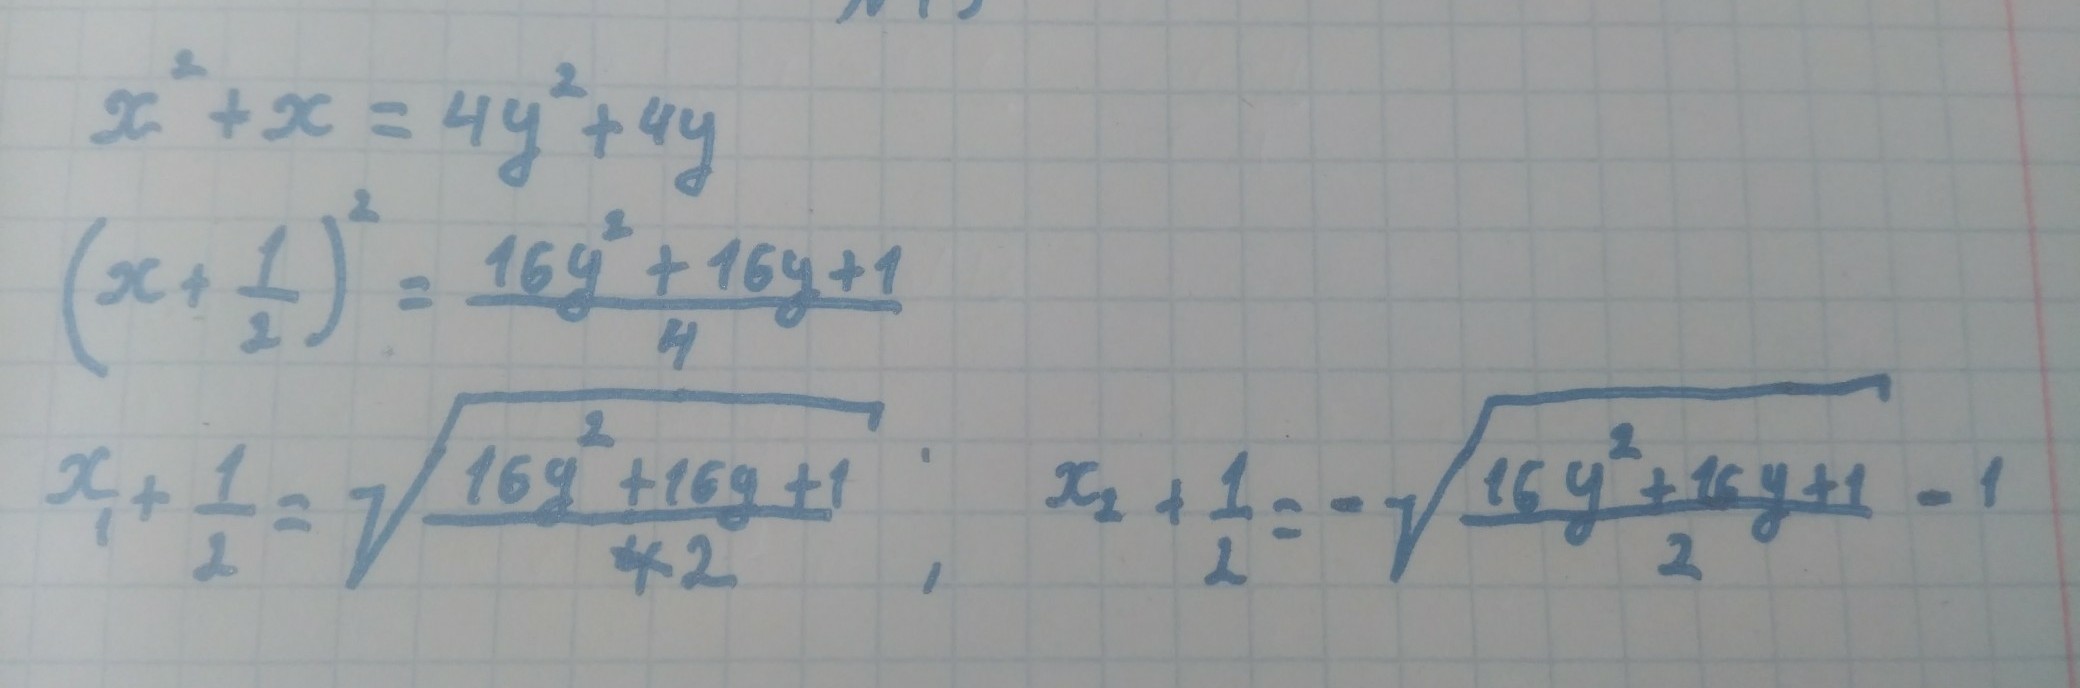 x² + x = 4y² + 4y
(x + 1/2)² = (16y² + 16y + 1)/4
x₁ + 1/2 = √((16y² + 16y + 1)/2) ; x₂ + 1/2 = -√((16y² + 16y + 1)/2) - 1